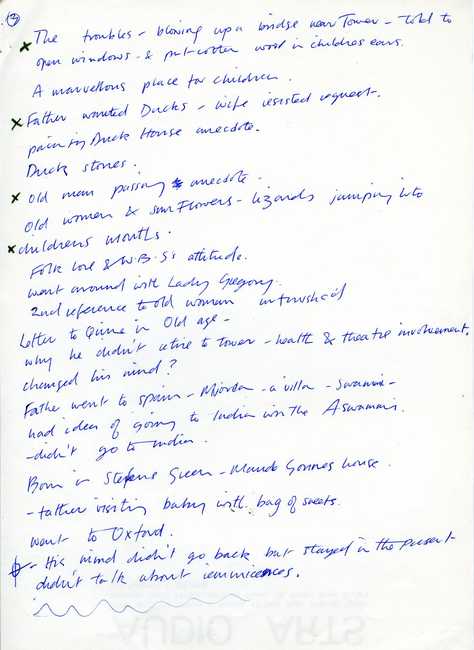 ③
x The troubles - blowing up a bridge near Tower - told to
open windows - & put cotton wool in childrens ears.
A marvellous place for children.
x Father wanted Ducks - wife resisted request.
painting Duck House anecdote.
Duck stories.
x Old man passing anecdote.
Old women & sun Flowers - lizards jumping into
x childrens mouths.
Folk lore & W.B.S's attitude.
went around with Lady Gregory.
2nd reference to old women unfinished
Letter to Quinn in Old age -
why he didn't retire to Tower - health & theatre involvement.
changed his mind?
Father went to Spain - - a villa - Swami -
had idea of going to India with the Swami.
- didn't go to India.
Born in Stephens Green - Maude Gonnes house.
- father visiting baby with bag of sweets.
went to Oxford.
- His mind didn't go back but stayed in the present
didn't talk about reminicences.
AUDIO ARTS